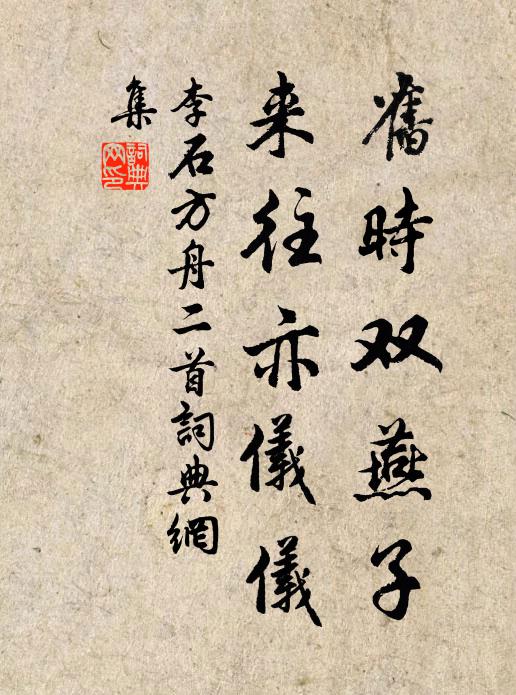 舊時双燕子
来往亦儀儀
李石方舟二首詞典網
集
詞典
网印